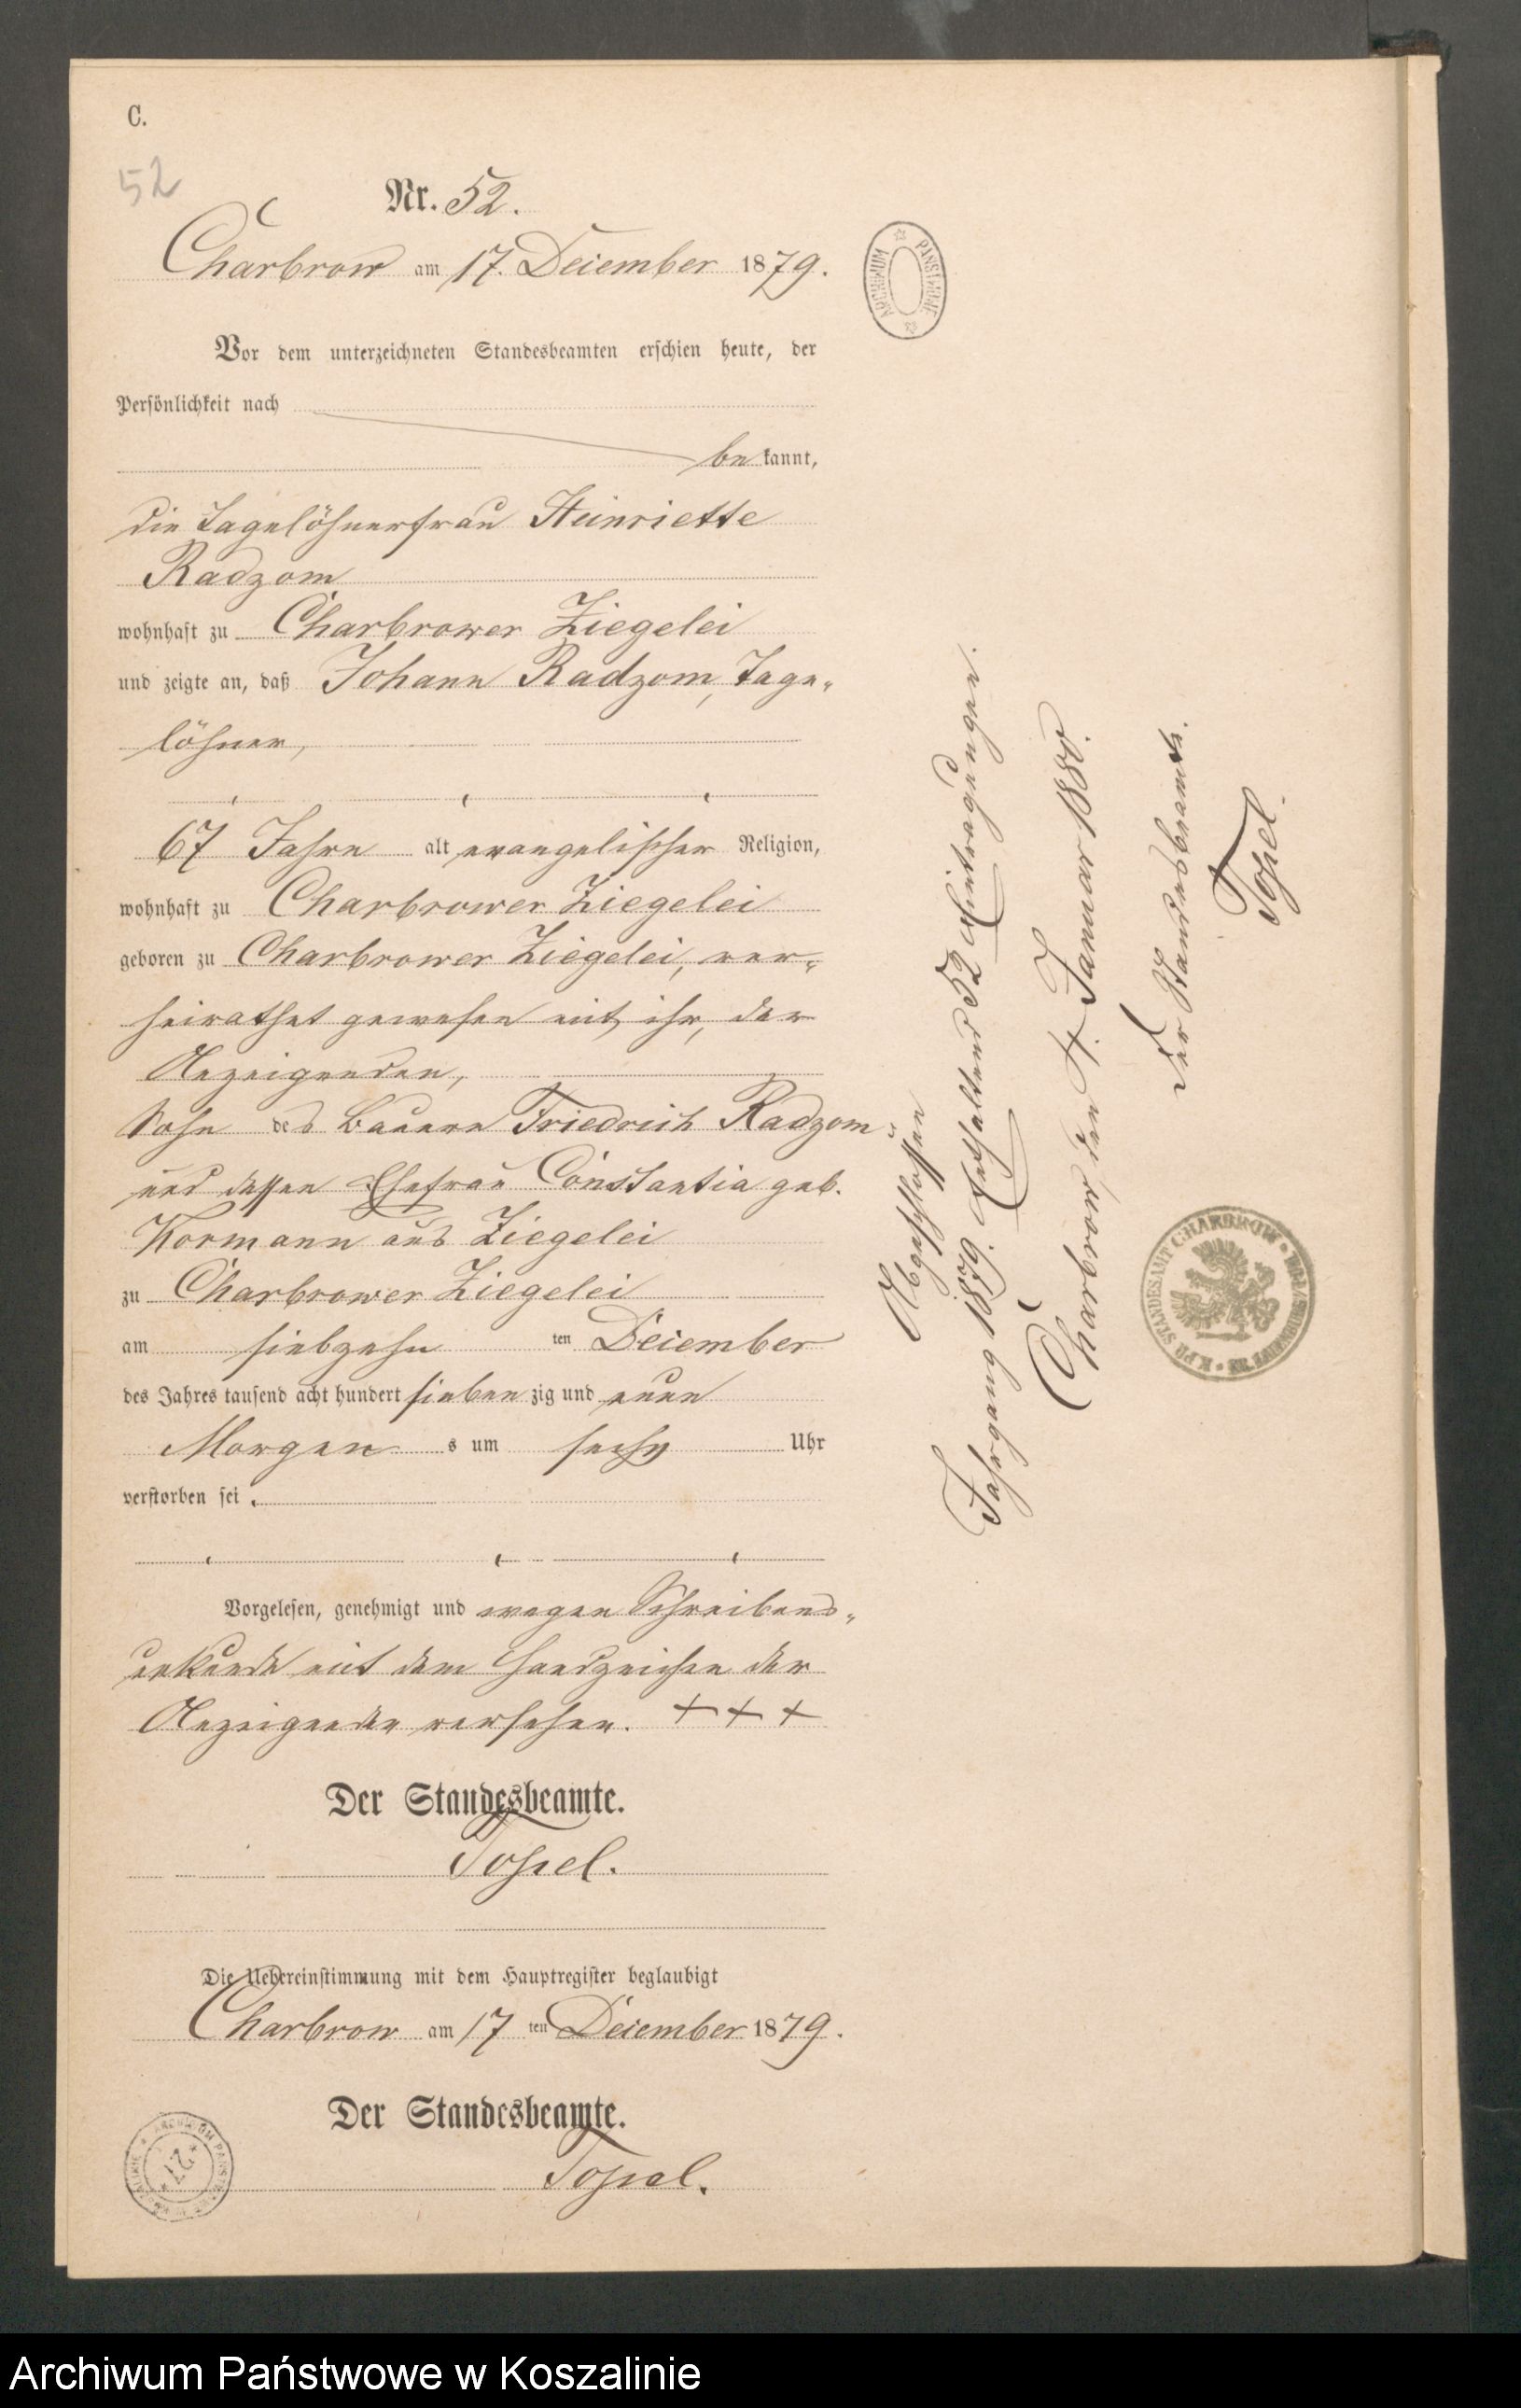 C.
52
Nr. 52.
Charbrow am 17. Dezember 1879.
Vor dem unterzeichneten Standesbeamten erschien heute, der
Persönlichkeit nach
be kannt,
die Tagelöhnerfrau Heinriette
Radzom
wohnhaft zu Charbrower Ziegelei
und zeigte an, daß Johann Radzom, Tage-
löhner,
67 Jahre alt evangelischer Religion,
wohnhaft zu Charbrower Ziegelei
geboren zu Charbrower Ziegelei, ver-
heirathet gewesen mit ihr, der
Anzeigenden,
Sohn des Bauern Friedrich Radzom
und dessen Ehefrau Constantia geb.
Kormann aus Ziegelei
zu Charbrower Ziegelei
am siebzehn ten Dezember
des Jahres tausend acht hundert sieben zig und neun
Morgen s um sechs Uhr
verstorben sei.
Vorgelesen, genehmigt und wegen Schreibens-
unkunde mit dem Handzeichen der
Anzeigenden versehen. + + +
Der Standesbeamte.
Die Uebereinstimmung mit dem Hauptregister beglaubigt
Charbrow am 17 ten Dezember 1879.
Der Standesbeamte.
Abgeschlossen
Jahrgang 1879. Enthaltend 52 Eintragungen.
Charbrow, den 4. Januar 1880.
Der Standesbeamte.
ARCHIWUM PAŃSTWOWE
K. PR. STANDESAMT CHARBROW
27
Archiwum Państwowe w Koszalinie